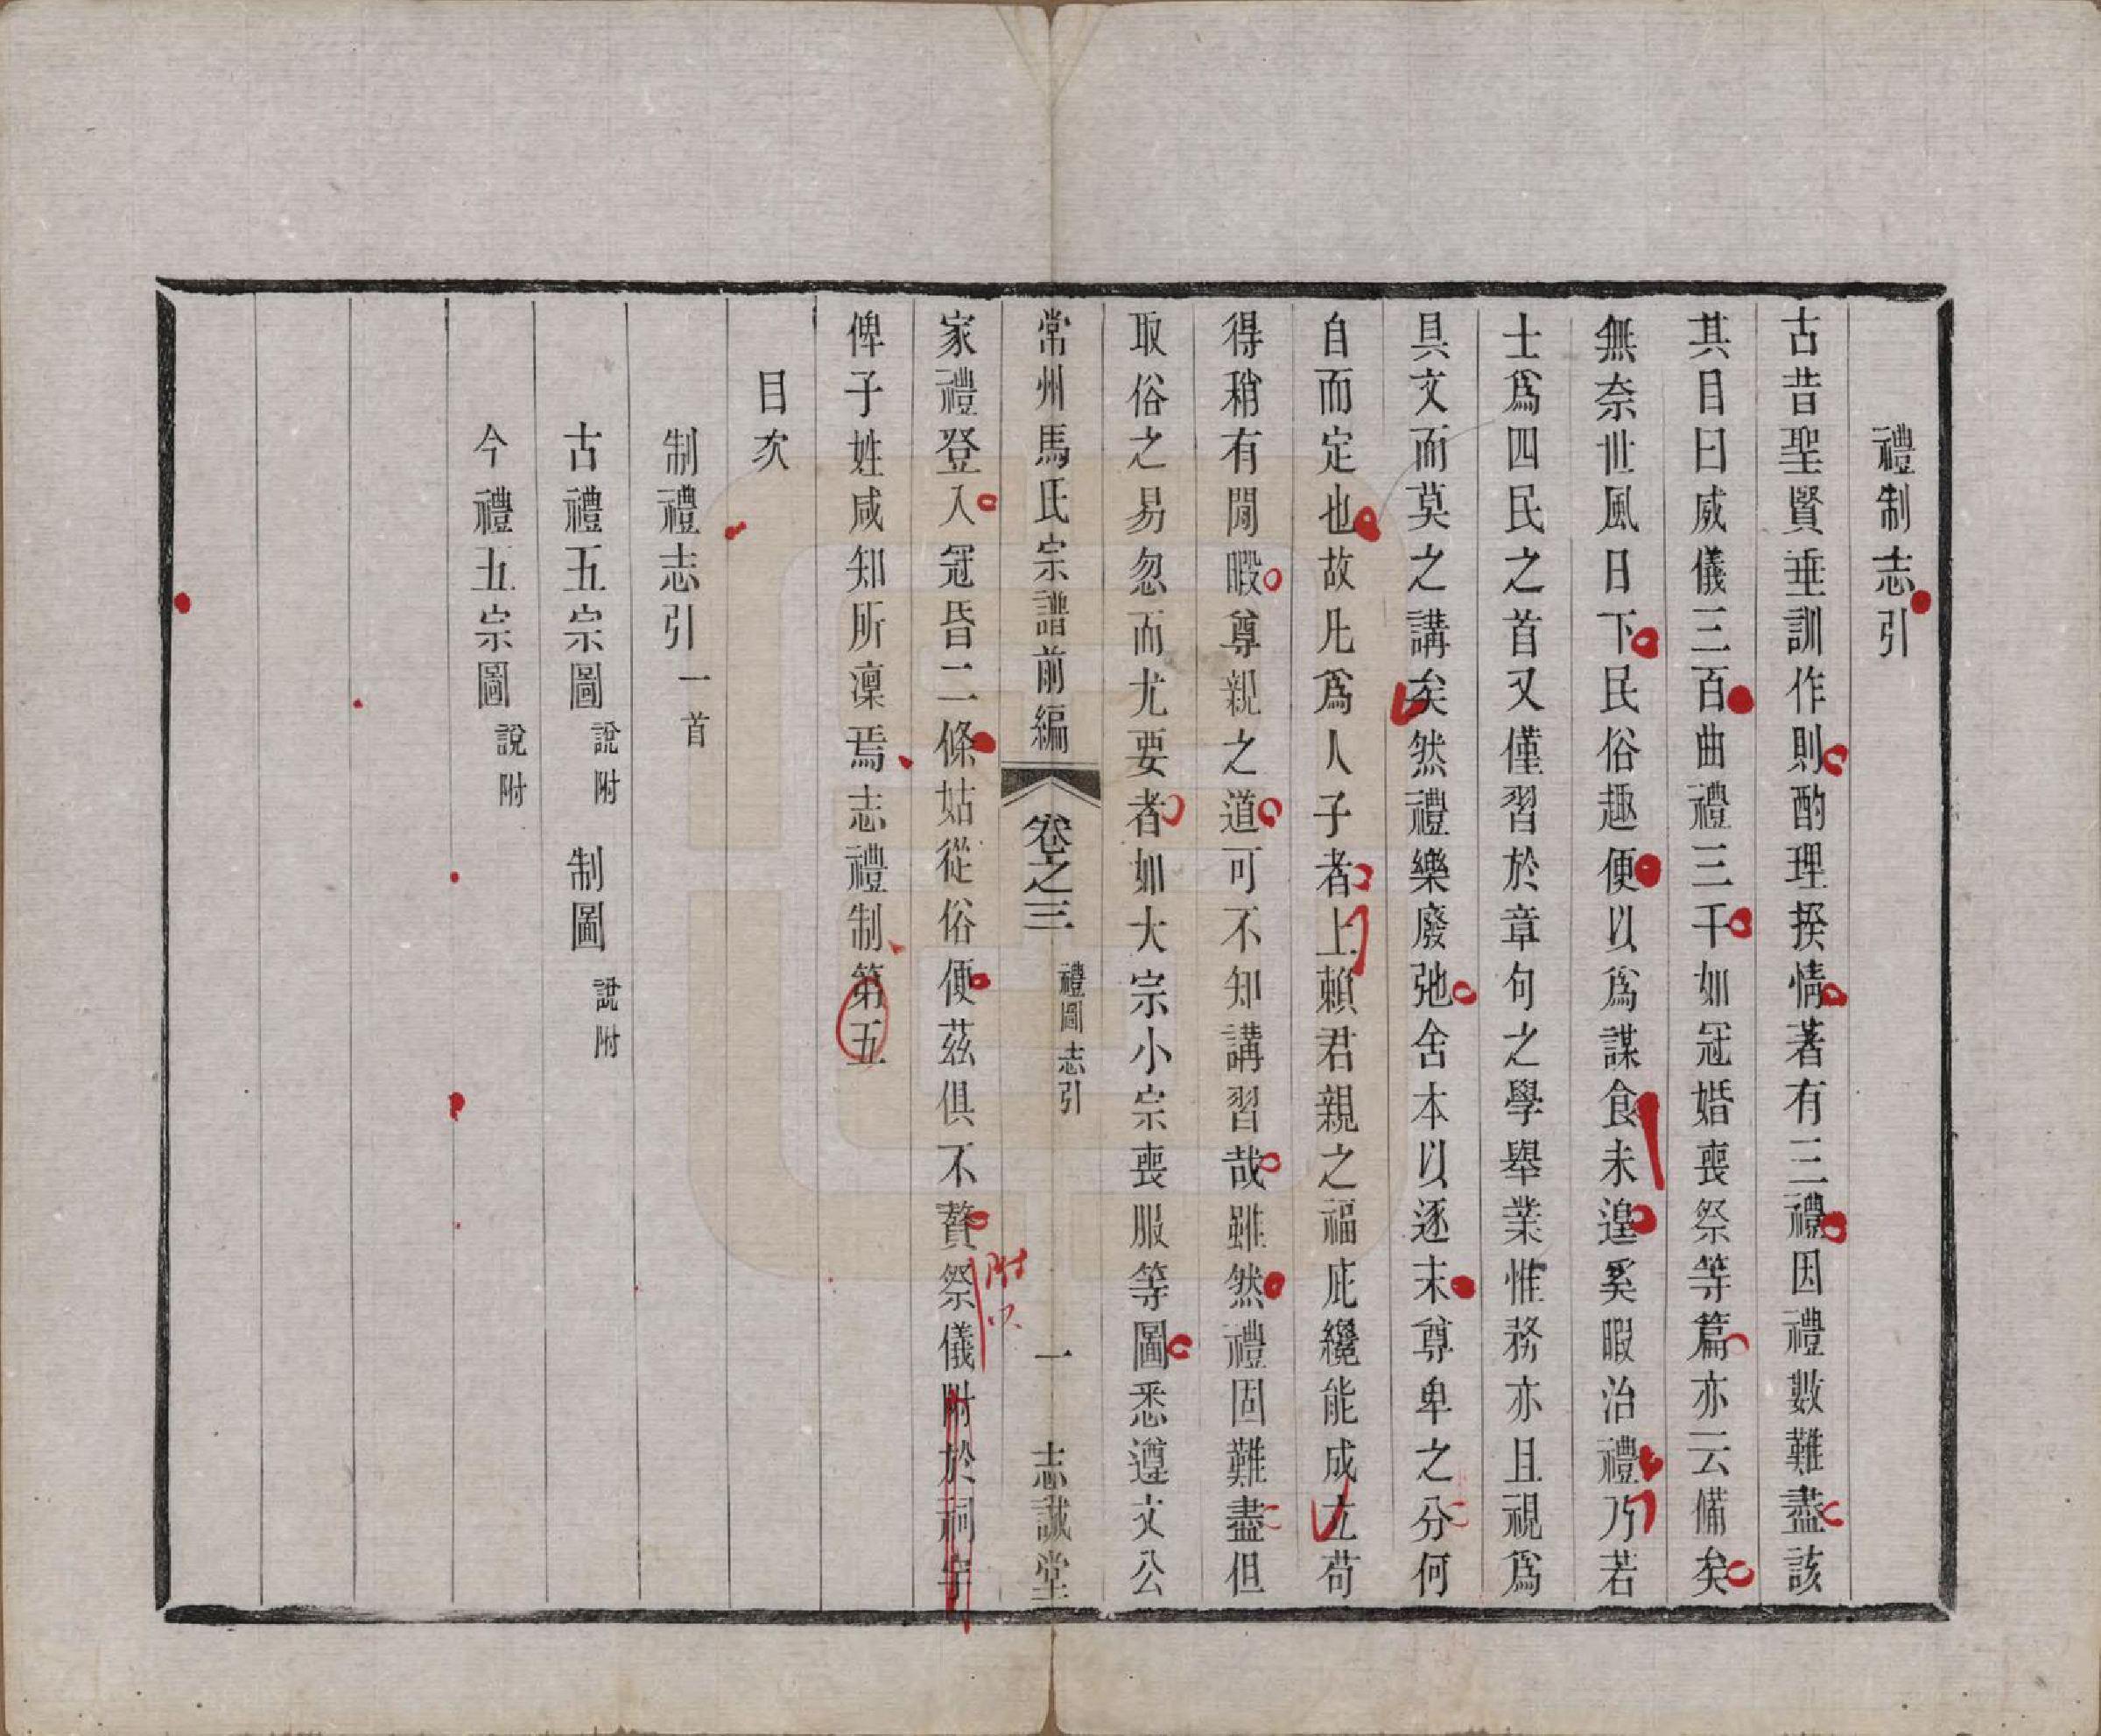 禮制志引
古昔聖賢垂訓作則酌理揆情著有三禮因禮數難盡該
其目曰威儀三百曲禮三千如冠婚喪祭等篇亦云備矣
無奈世風日下民俗趣便以爲謀食未遑奚暇治禮乃若
士爲四民之首又僅習於章句之學舉業惟務亦且視爲
具文而莫之講矣然禮樂廢弛舍本以逐末尊卑之分何
自而定也故凡爲人子者上賴君親之福庇纔能成立苟
得稍有閒暇尊親之道可不知講習哉雖然禮固難盡但
取俗之易忽而尤要者如大宗小宗喪服等圖悉遵文公
常州馬氏宗譜前編 卷之三 禮圖志引 一 志誠堂
家禮登入冠昏二條姑從俗便茲俱不贅祭儀附於祠宇
附
俾子姓咸知所凜焉志禮制第五
目次
制禮志引 一首
古禮五宗圖 說附 制圖 說附
今禮五宗圖 說附